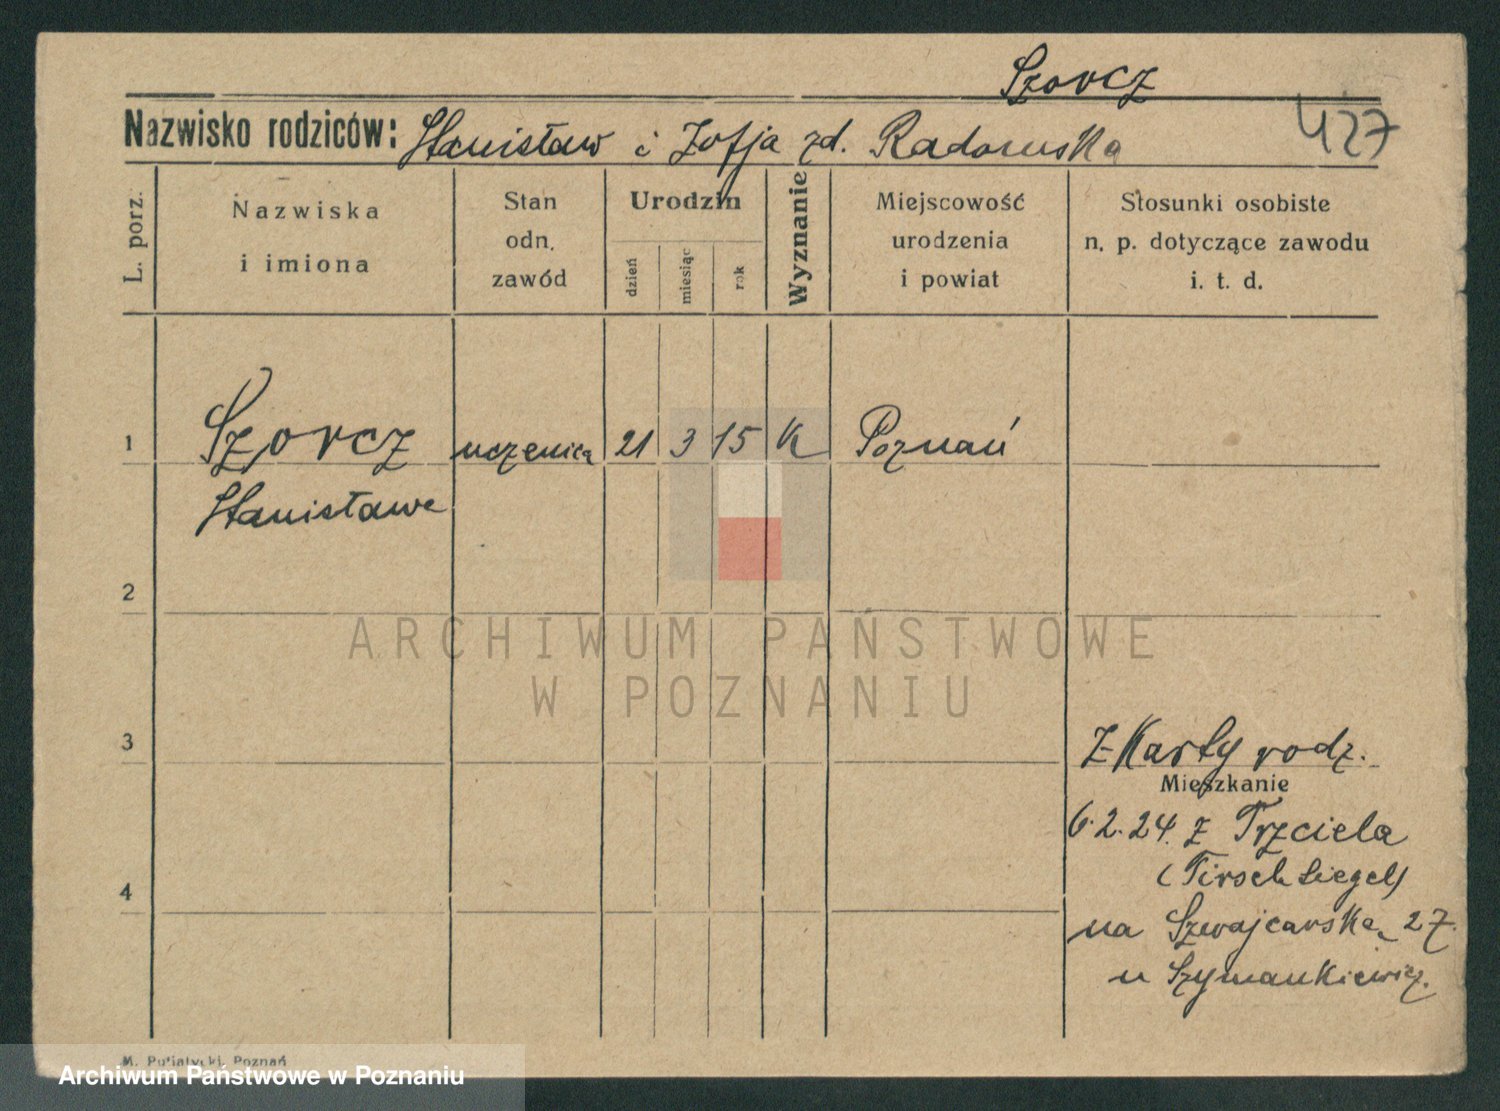 Szorcz
427
Nazwisko rodziców: Stanisław i Zofja zd. Radomska
L. porz.
Nazwiska
i imiona
Stan
odn.
zawód
Urodzin
dzień
miesiąc
rok
Wyznanie
Miejscowość
urodzenia
i powiat
Stosunki osobiste
n. p. dotyczące zawodu
i. t. d.
1 Szorcz uczenica 21 3 15 K Poznań
Stanisława
2
ARCHIWUM PAŃSTWOWE
W POZNANIU
3
Z Karty rodz.
Mieszkanie
6.2.24. z Trzciela
(Tirschtiegel)
4
na Szwajcarską 27.
u Szymankiewicz.
M. Putiatycki, Poznań
Archiwum Państwowe w Poznaniu